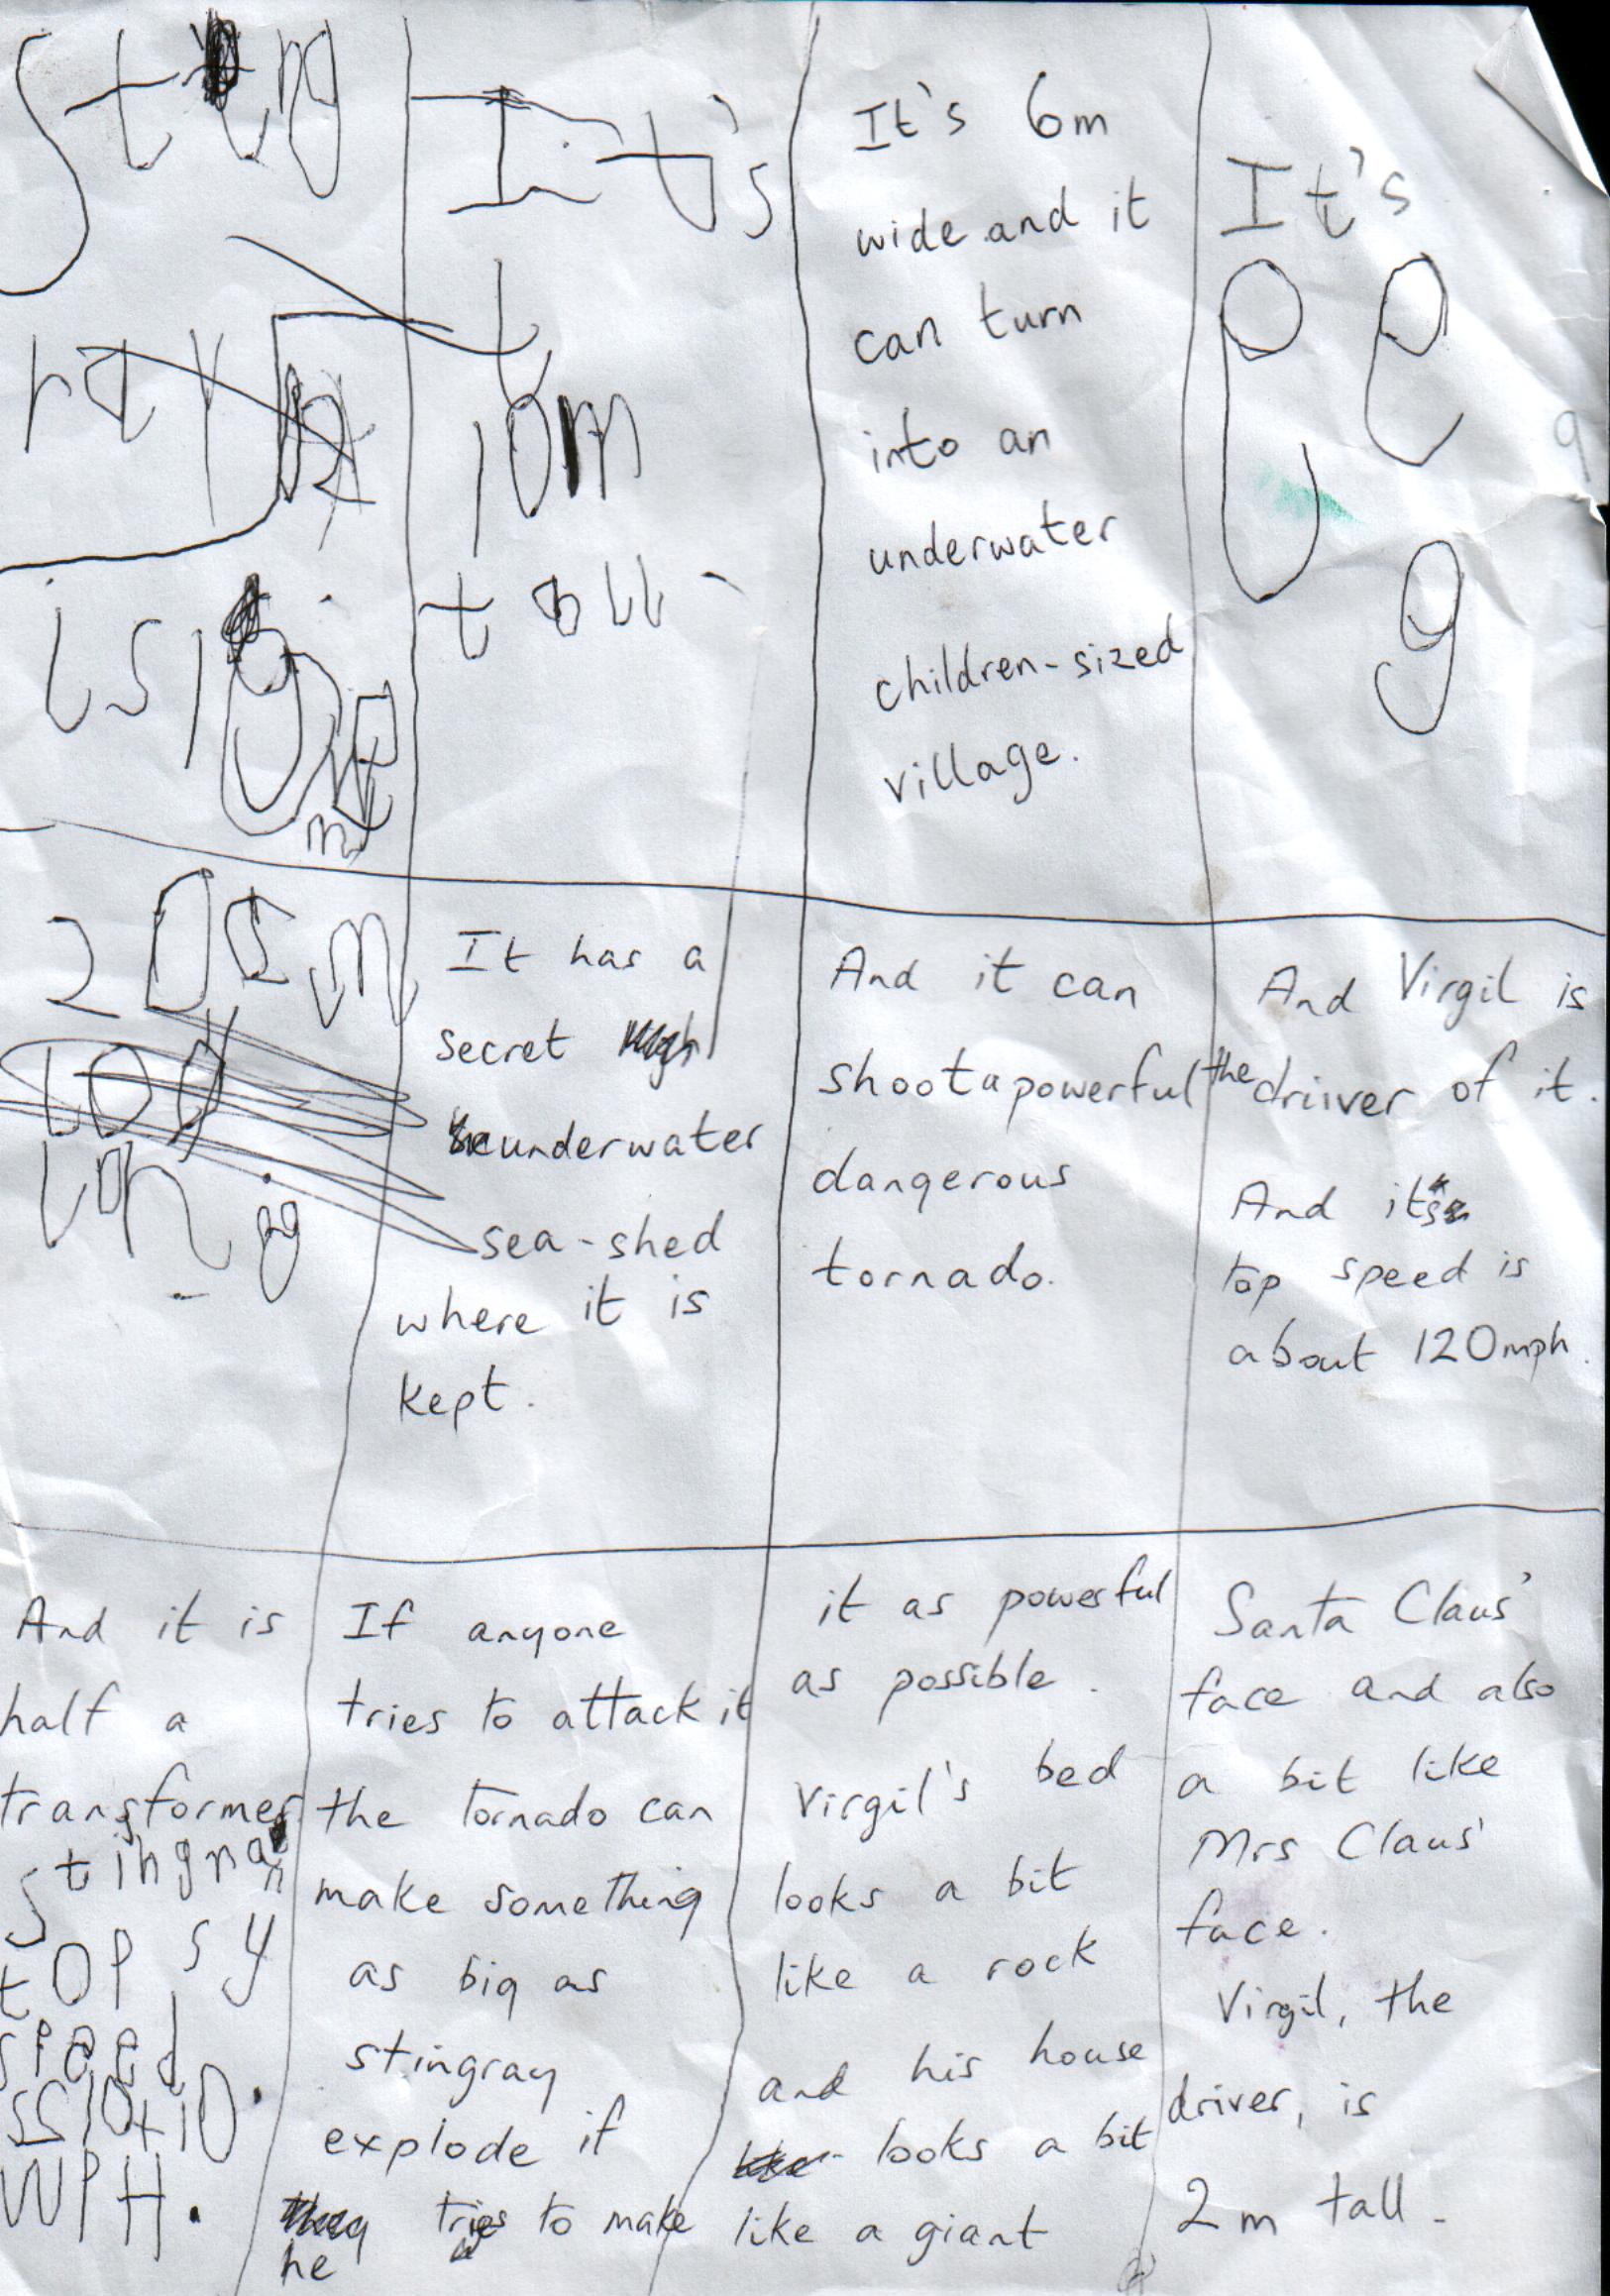 Sting
ray
is
205m
long
It's
10m
tall
It's 6m
wide and it
can turn
into an
underwater
children-sized
village.
It's
It has a
secret
underwater
sea-shed
where it is
kept.
And it can
shoot a powerful
dangerous
tornado.
And Virgil is
the driiver of it.
And its
top speed is
about 120mph.
And it is
half a
transformer.
top
speed
If anyone
tries to attack it
the tornado can
make something
as big as
stingray
explode if
he tries to make
it as powerful
as possible.
Virgil's bed
looks a bit
like a rock
and his house
looks a bit
like a giant
Santa Claus'
face and also
a bit like
Mrs Claus'
face.
Virgil, the
driver, is
2m tall.